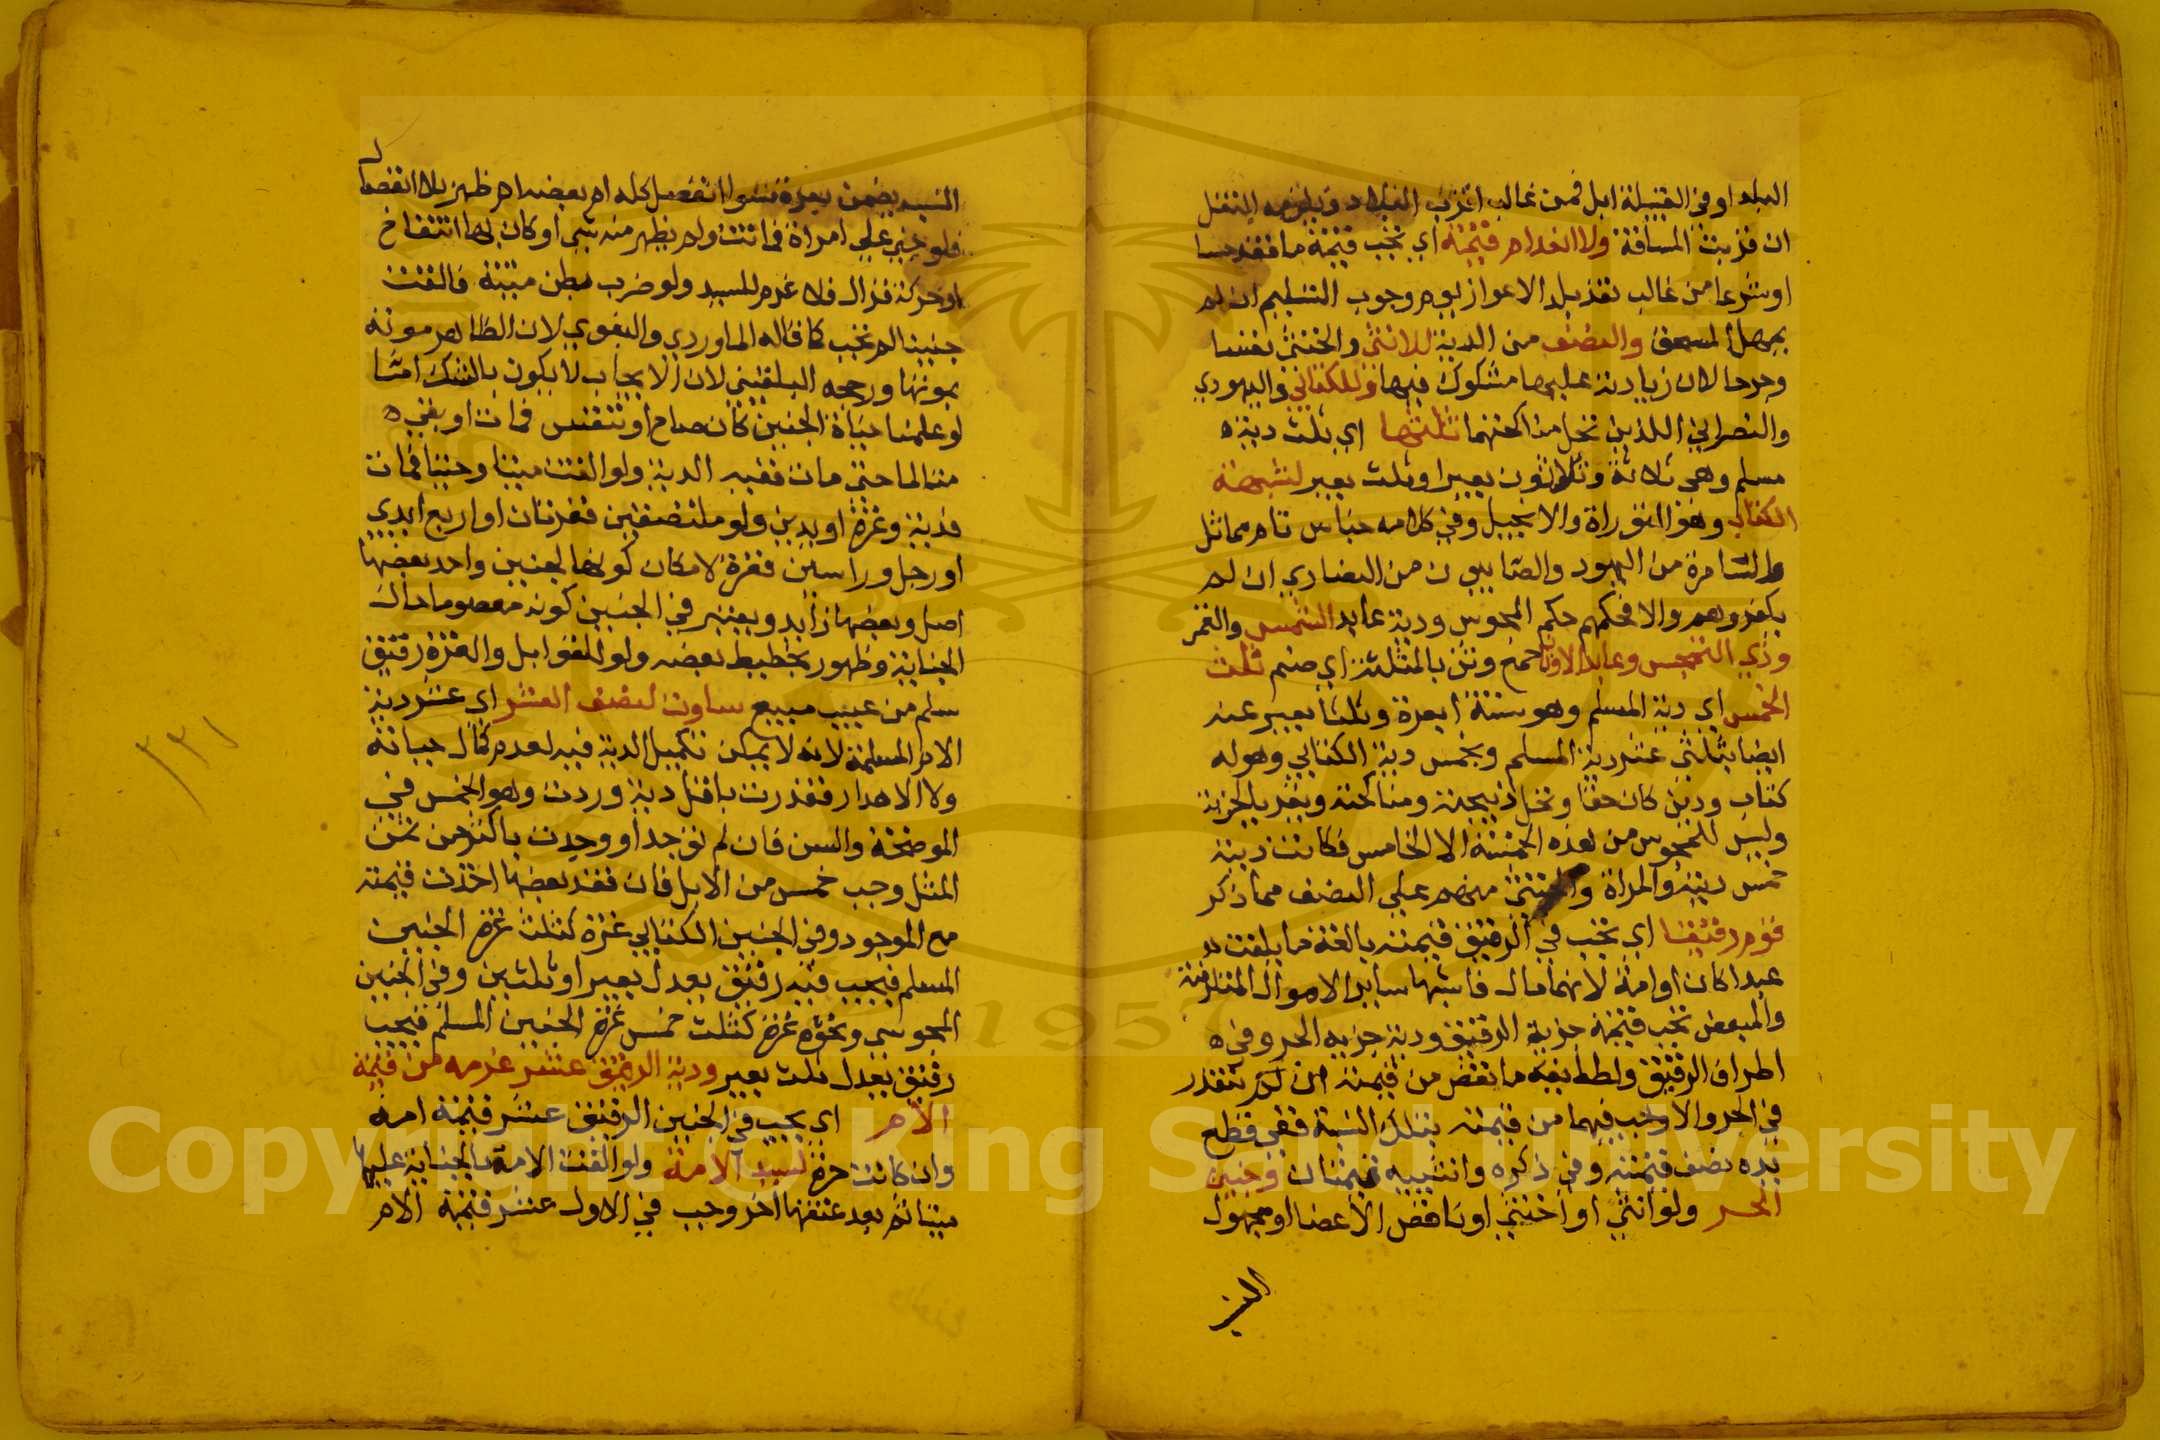 البلد او في القبيلة ابل فمن غالب اقرب البلاد ويلزمه النقل
ان قربت المسافة ولا انعدام قيمة اي تجب قيمة ما فقد حسا
او شرعا من غالب نقد بلد الاعواز يوم وجوب التسليم ان لم
يمهل المستحق والنصف من الدية للانثى والخنثى نفسا
وجرحا لان زيادته عليها مشكوك فيها وللكتابي واليهودي
والنصراني اللذين تحل مناكحتهما ثلثها اي ثلث دية
مسلم وهي ثلاثة وثلاثون بعيرا وثلث بعير لشبهة
الكتاب وهو التوراة والانجيل وفي كلامه جناس تام مماثل
والسامرة من اليهود والصابيون من النصارى ان لم
يكفروهم والا فحكمهم حكم المجوس ودية عابد الشمس والقمر
وذي التمجس وعابد الاوثان جمع وثن بالمثلثة اي صنم ثلث
الخمس اي دية المسلم وهو ستة ابعرة وثلثا بعير عنه
ايضا بثلثي عشر دية المسلم وبخمس دية الكتابي وهو له
كتاب ودين كان حقا وتحل ذبيحته ومناكحته ويقر بالجزية
وليس للمجوس من هذه الخمسة الا الخامس فكانت ديته
خمس ديته والمراة والخنثى منهم على النصف مما ذكر
قوم رقيقا اي تجب في الرقيق قيمته بالغة ما بلغت
عبدا كان او امة لانهما مال فاشبها ساير الاموال المتلفة
والمبعض تجب قيمة جزية الرقيق ودية جزيه الحر وفي
اطراف الرقيق ولطايفه ما نقص من قيمته ان لم تتقدر
في الحر والا وجب فيهما من قيمته بتلك النسبة ففي قطع
يده نصف قيمته وفي ذكره وانثييه قيمتان وجنين
الحر ولو انثى او خنثى او ناقص الاعضا او مجهول
النسب
النسب يضمن بغرة سوا انفصل كله ام بعضه ام ظهر بلا انفصال
فلو جني على امراة فماتت ولم يظهر منه شي او كان بها انتفاخ
او حركة فزال فلا غرم للسيد ولو ضرب بطن ميتة فالقت
جنينا لم تجب كما قاله الماوردي والبغوي لان الظاهر موته
بموتها ورجحه البلقيني لان الايجاب لا يكون بالشك امثا
لو علمنا حياة الجنين كان صاح او تنفس فمات او بقي
متالما حتى مات ففيه الدية ولو القت ميتا وحيا فمات
فدية وغرة او يدين ولو ملتصقتين فغرتان او اربع ايدي
او رجل وراسين فغرة لامكان كونها لجنين واحد بعضها
اصل وبعضها زايد ويعتبر في الجنين كونه معصوما حال
الجناية وظهور تخطيط بعضه ولو للقوابل والغرة رقيق
سلم من عيب مبيع ساوت لنصف العشر اي عشر دية
الام المسلمة لانه لا يمكن تكميل الدية فيه لعدم كمال حياته
ولا الاهدار فقدرت باقل دية وردت وهو الخمس في
الموضحة والسن فان لم توجد او وجدت باكثر من ثمن
المثل وجب خمس من الابل فان فقد بعضها اخذت قيمته
مع الموجود وفي الجنين الكتابي غرة كثلث غرة الجنين
المسلم فيجب فيه رقيق يعدل بعيرا وثلثين وفي الجنين
المجوسي ونحوه غرة كثلث خمس غرة الجنين المسلم فيجب
رقيق يعدل ثلث بعير ودية الرقيق عشر غرمه من قيمة
الام اي يجب في الجنين الرقيق عشر قيمة امه
وان كانت حرة لسيد الامة ولو القت الامة بالجناية عليها
ميتا ثم بعد عتقها اخر وجب في الاول عشر قيمة الام